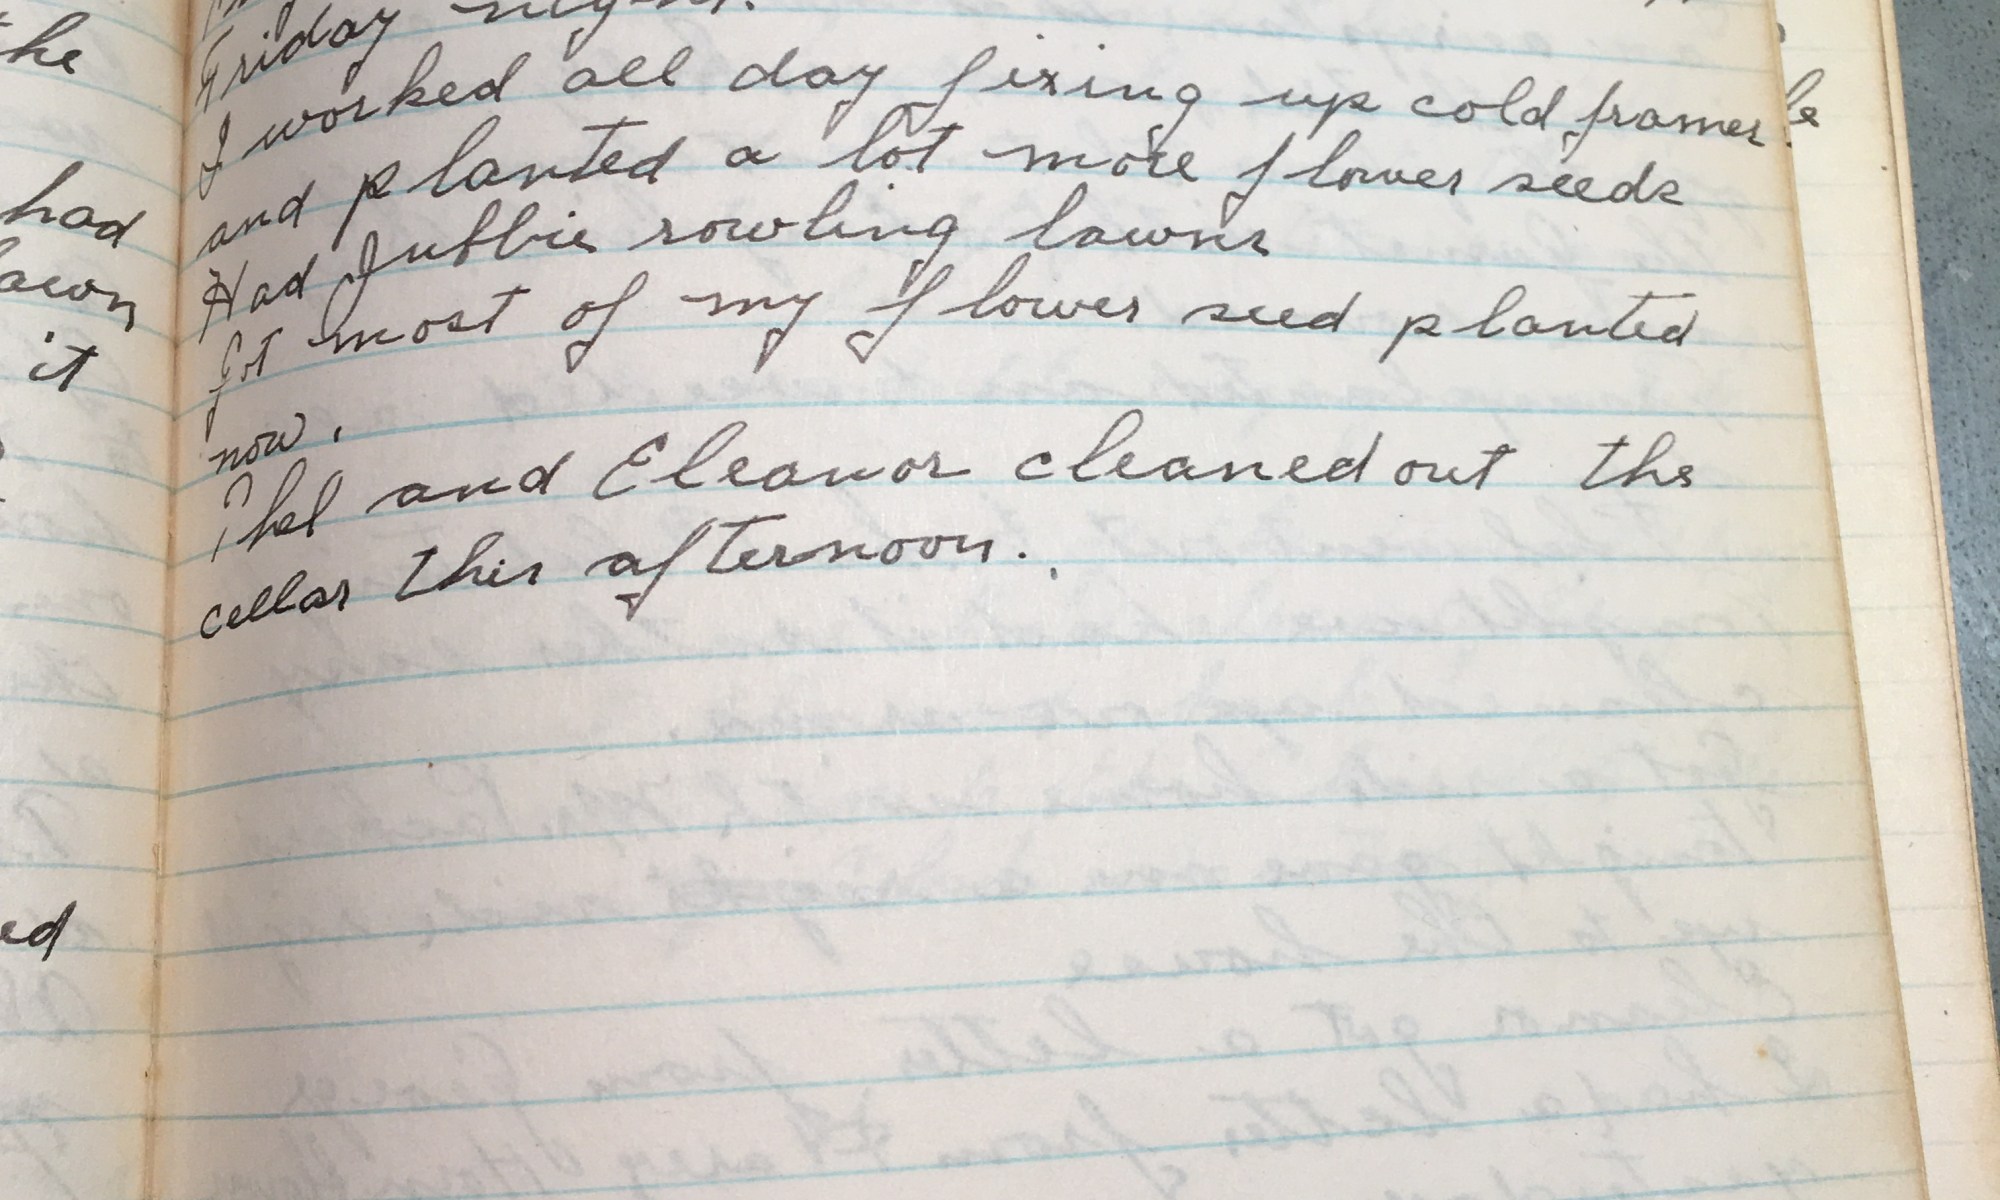 the
had
lawn
it
ed
Friday night.
I worked all day fixing up cold frames.
and planted a lot more flower seeds
Had Jubbie rowling lawns
Got most of my flower seed planted
now.
Phel and Eleanor cleaned out the
cellar this afternoon.